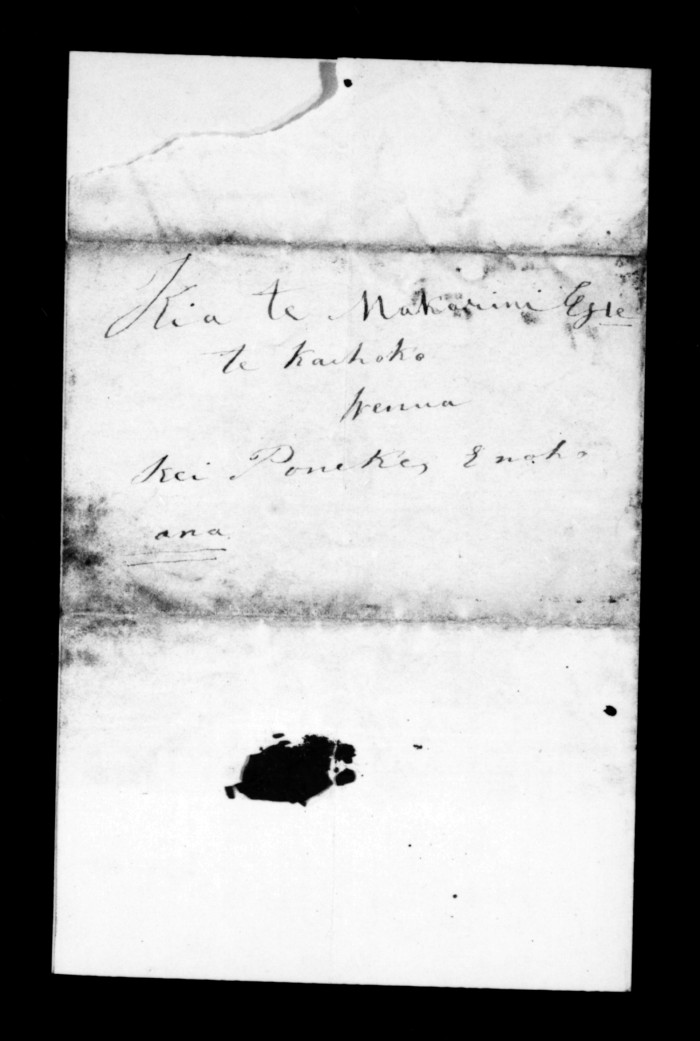 Kia te Makarini Esqre
te Kaihoko
Wenua
Kei Poneke, Enoho
ana